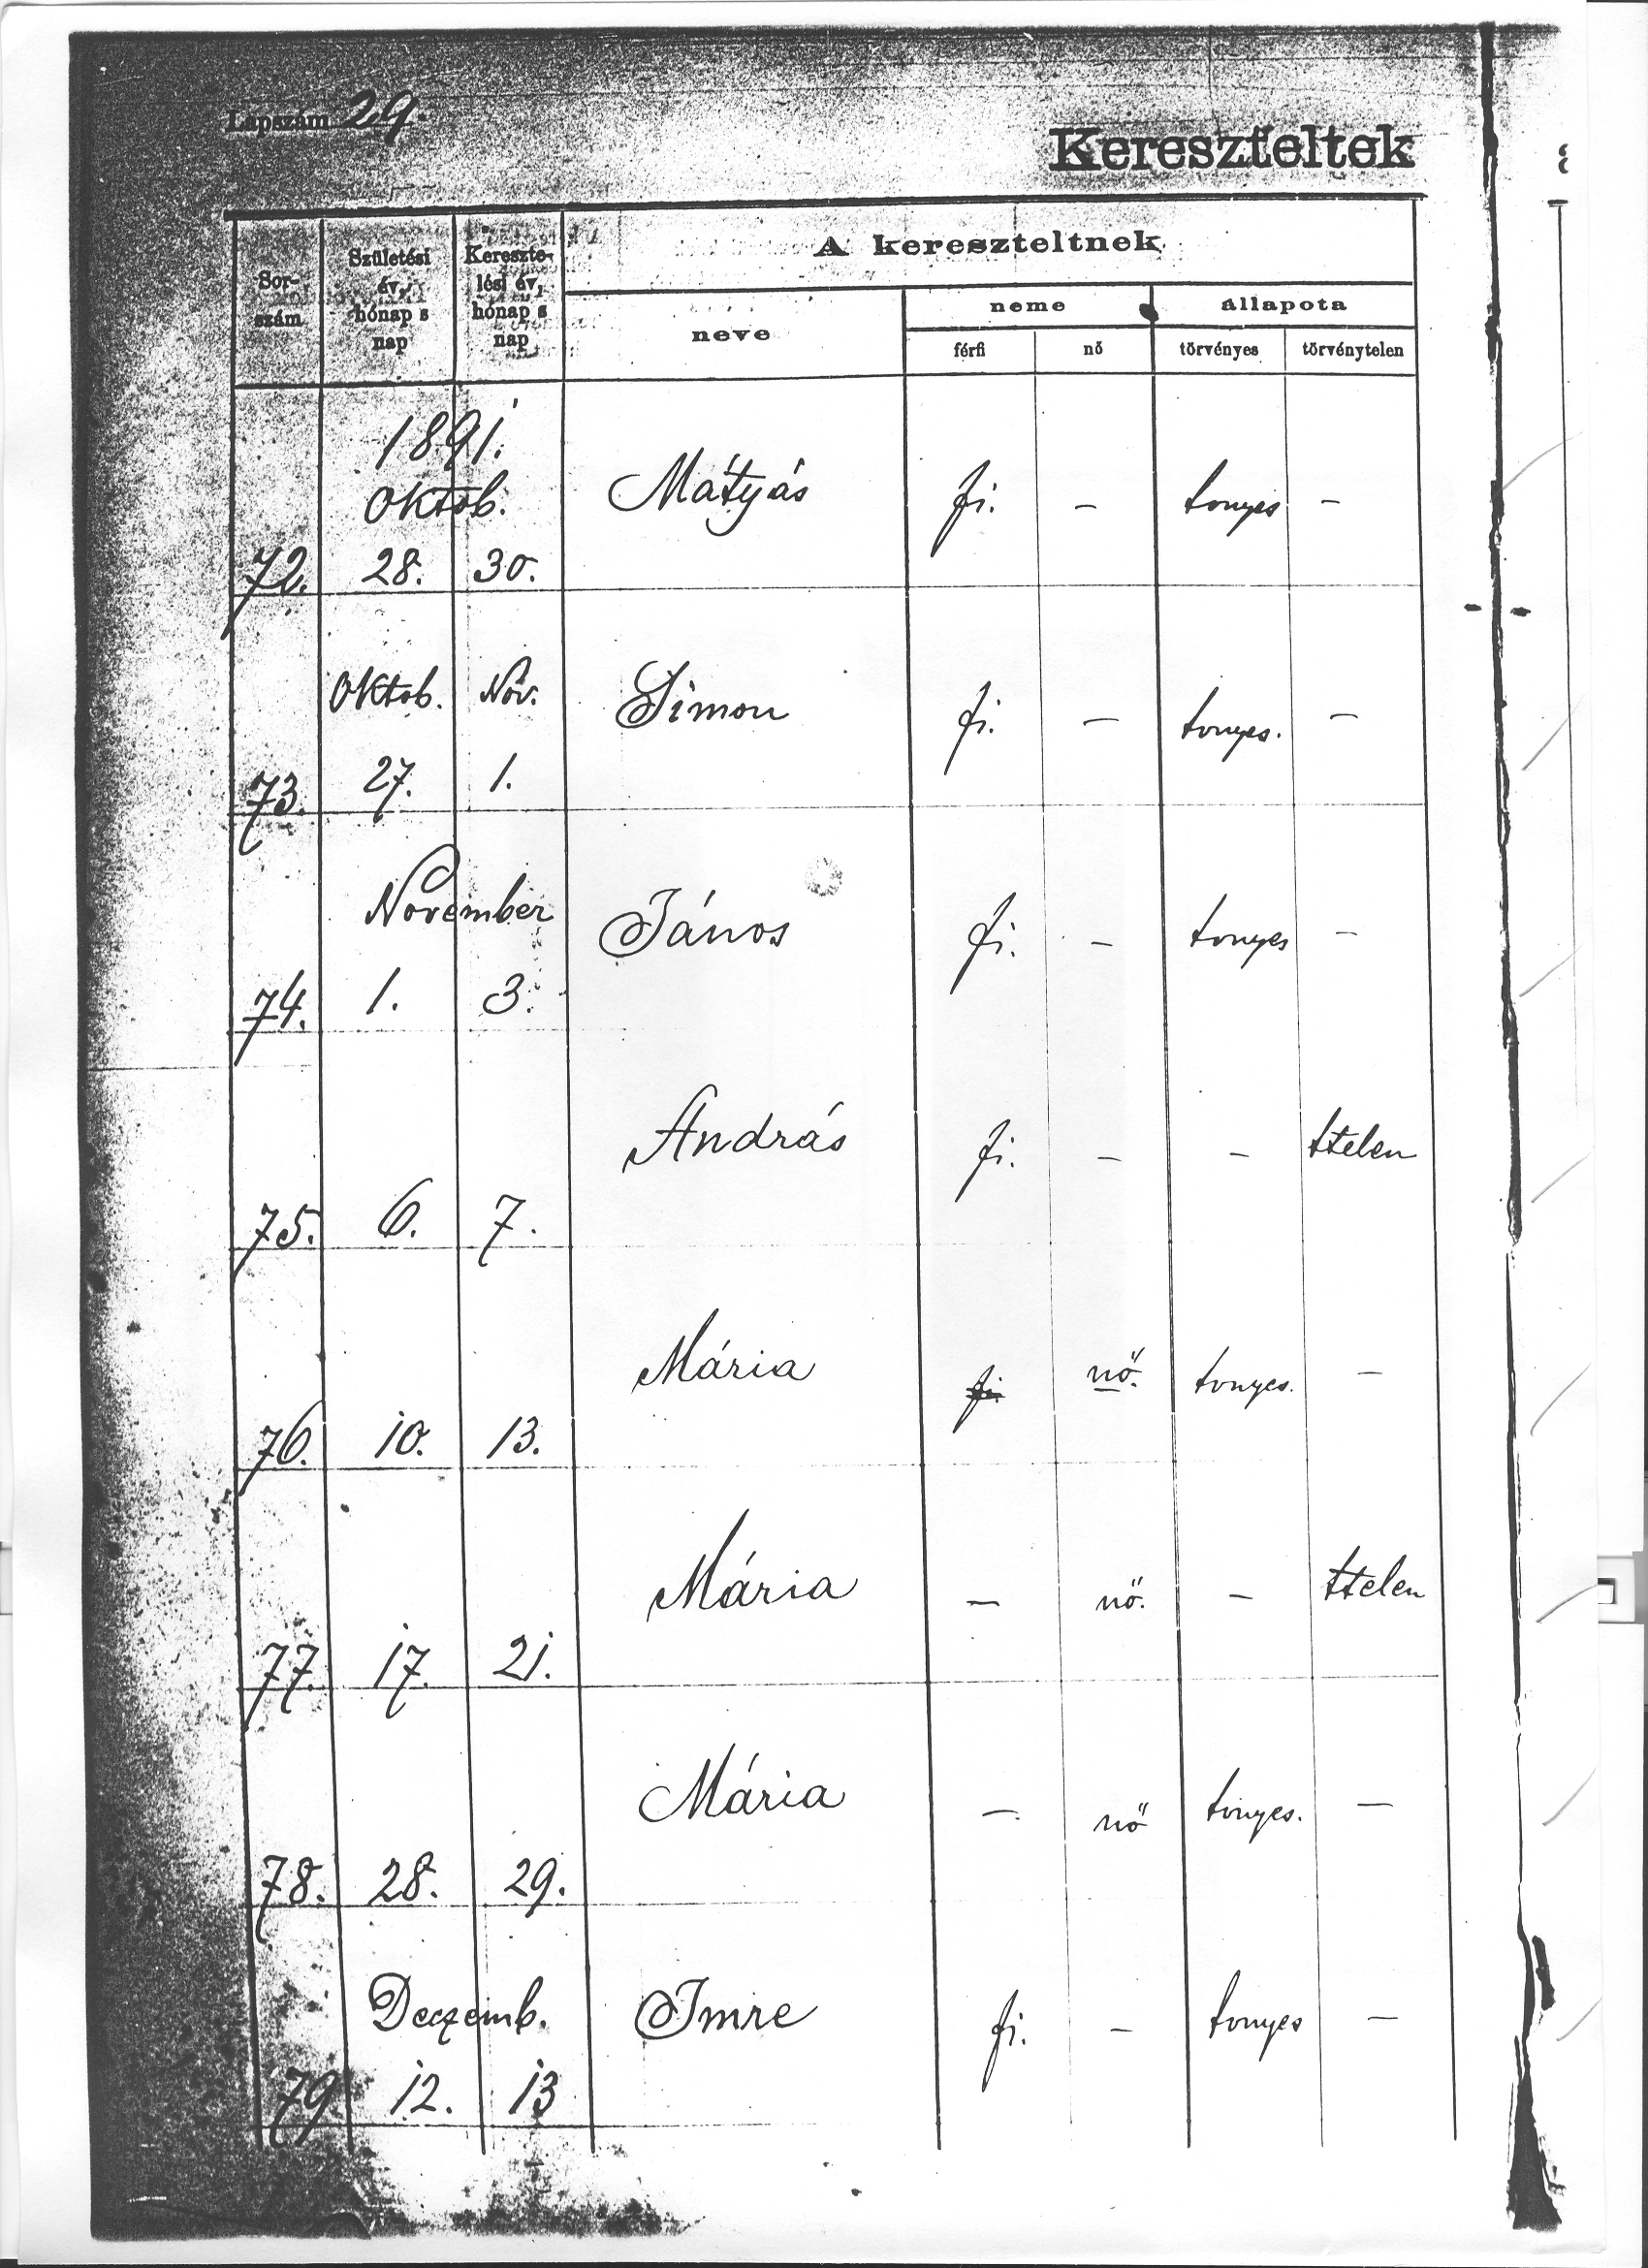 Lapszám 29.
Kereszteltek
Sor-
szám
Születési
év,
hónap s
nap
Kereszte-
lési év,
hónap s
nap
A kereszteltnek
neve
neme
állapota
férfi
nő
törvényes
törvénytelen
1891.
Oktob.
72. 28. 30. Mátyás fi. – tvnyes –
Oktob. Nov.
73. 27. 1. Simon fi. – tvnyes. –
November
74. 1. 3. János fi. – tvnyes –
75. 6. 7. András fi. – – ttelen
76. 10. 13. Mária fi. nő. tvnyes. –
77. 17. 21. Mária – nő. – ttelen
78. 28. 29. Mária – nő tvnyes. –
Deczemb.
79 12. 13 Imre fi. – tvnyes –